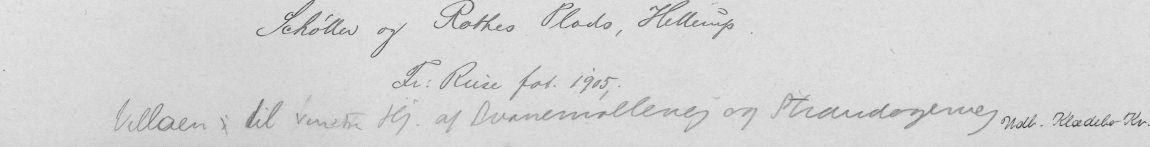 Schøller og Rothes Plads, Hellerup.
Fr: Riise fot. 1905,.
Villaen x til venstre Hj. af Svanemøllevej og Strandagervej Udb. Klædebo Kv.